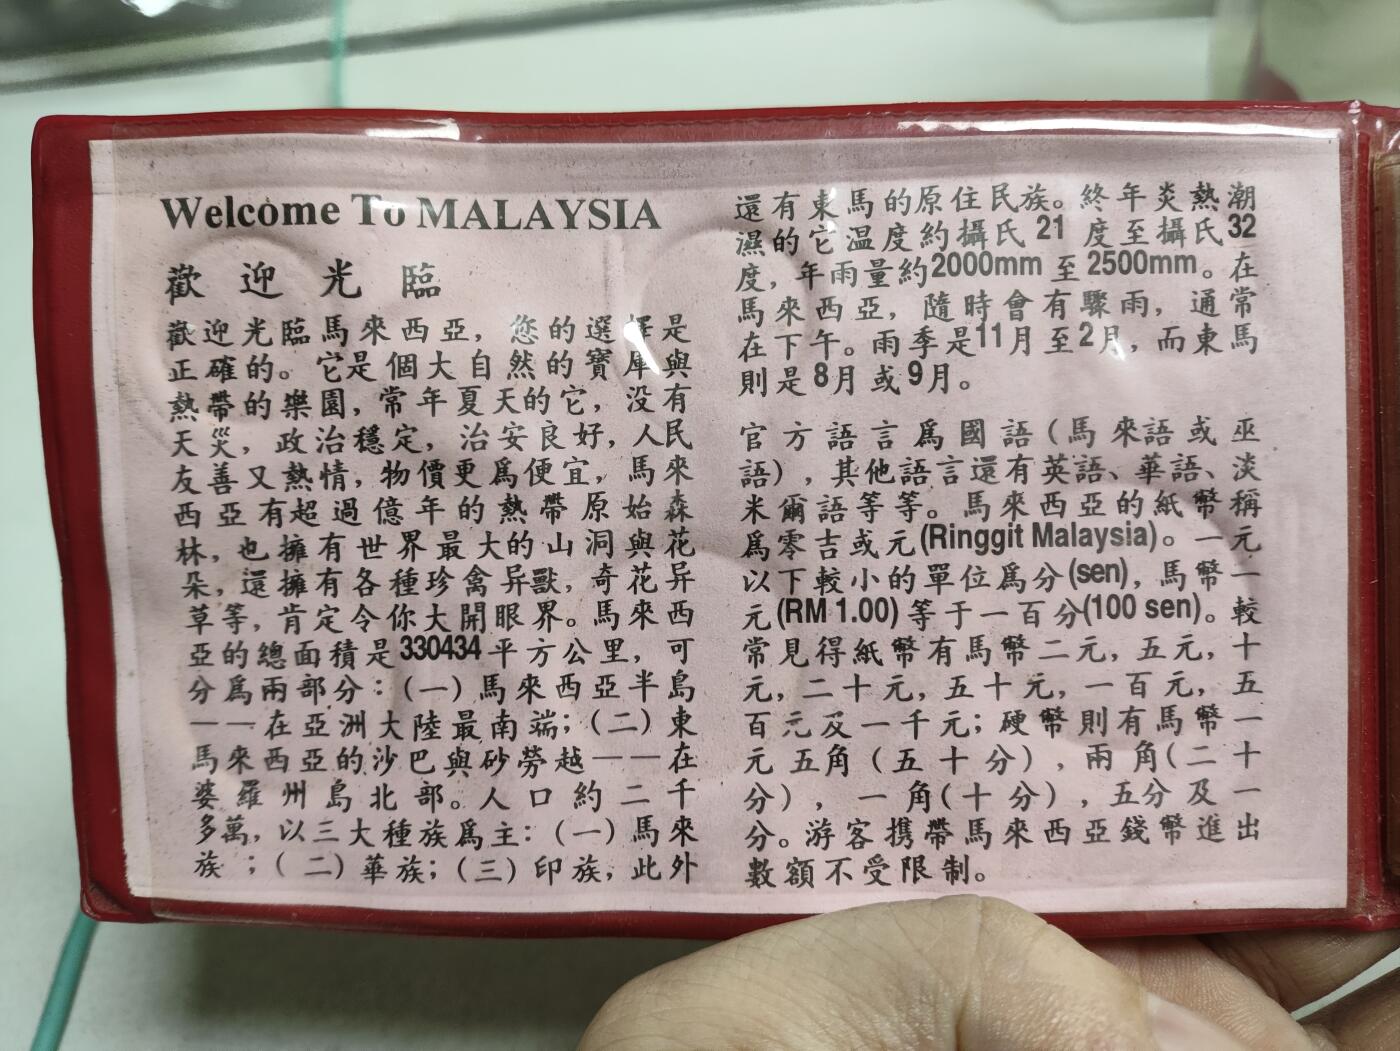 Welcome To MALAYSIA
歡迎光臨
歡迎光臨馬來西亞，您的選擇是
正確的。它是個大自然的寶庫與
熱帶的樂園，常年夏天的它，没有
天災，政治穩定，治安良好，人民
友善又熱情，物價更爲便宜，馬來
西亞有超過億年的熱帶原始森
林，也擁有世界最大的山洞與花
朵，還擁有各種珍禽异獸，奇花异
草等，肯定令你大開眼界。馬來西
亞的總面積是330434平方公里，可
分爲兩部分：(一)馬來西亞半島
——在亞洲大陸最南端；(二)東
馬來西亞的沙巴與砂勞越——在
婆羅州島北部。人口約二千
多萬，以三大種族爲主：(一)馬來
族；(二)華族；(三)印族，此外
還有東馬的原住民族。終年炎熱潮
濕的它温度約攝氏21度至攝氏32
度，年雨量約2000mm至2500mm。在
馬來西亞，隨時會有驟雨，通常
在下午。雨季是11月至2月，而東馬
則是8月或9月。
官方語言爲國語(馬來語或巫
語)，其他語言還有英語、華語、淡
米爾語等等。馬來西亞的紙幣稱
爲零吉或元(Ringgit Malaysia)。一元
以下較小的單位爲分(sen)，馬幣一
元(RM 1.00)等于一百分(100 sen)。較
常見得紙幣有馬幣二元，五元，十
元，二十元，五十元，一百元，五
百元及一千元；硬幣則有馬幣一
元五角(五十分)，兩角(二十
分)，一角(十分)，五分及一
分。游客携帶馬來西亞錢幣進出
數額不受限制。